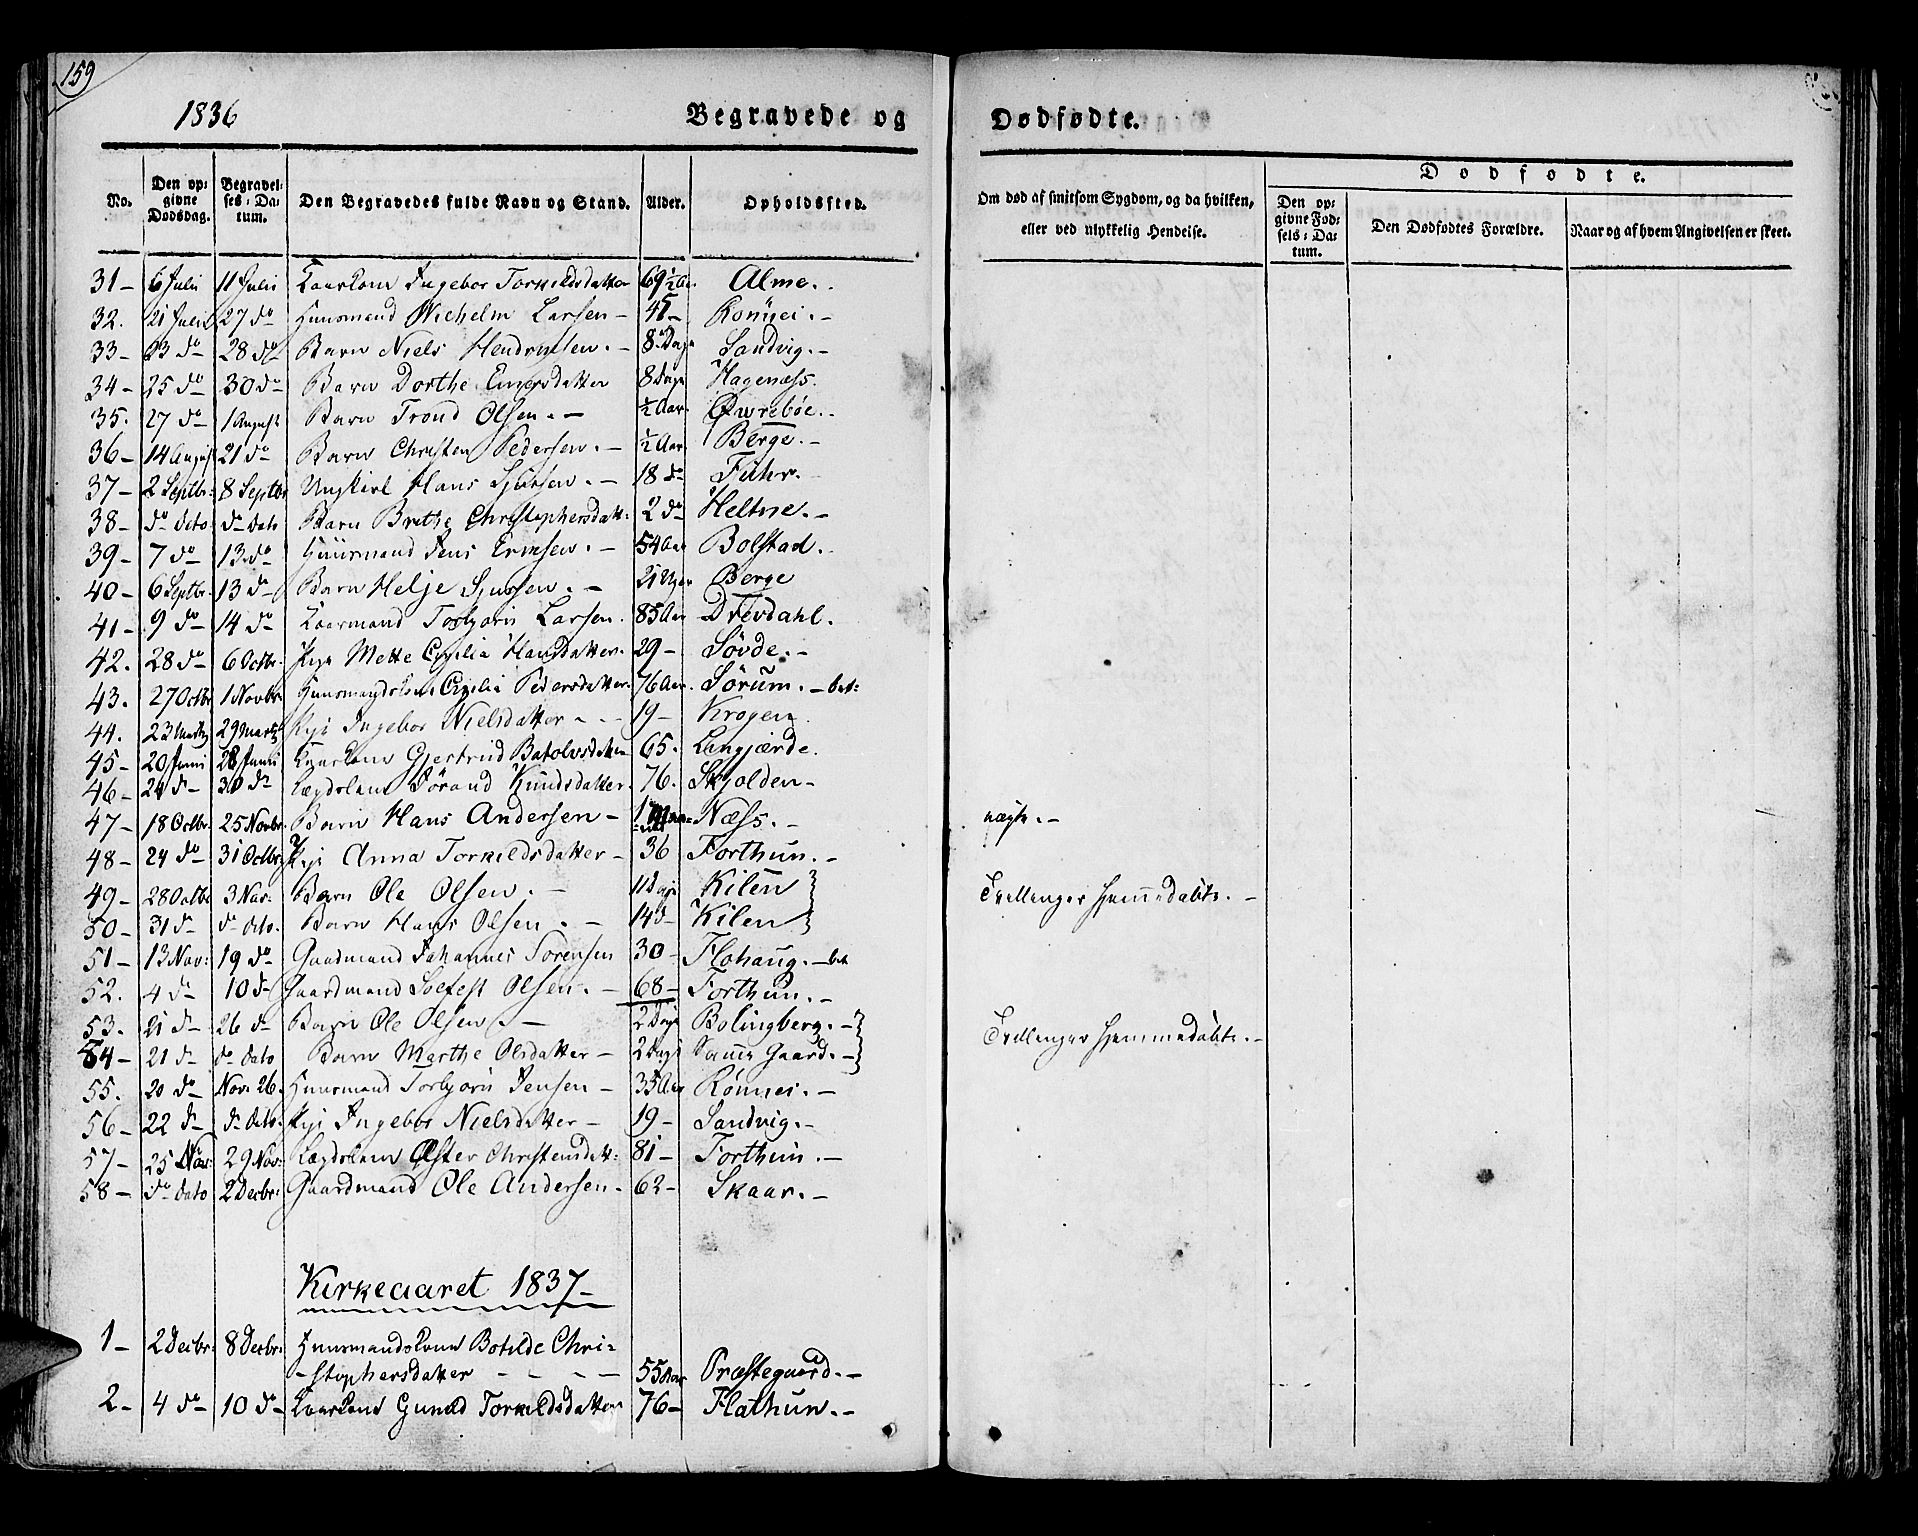 159
1836
Begravede og
Dødfødte.
No.
Den op-
givne
Dødsdag.
Begravel-
ses-Da-
tum.
Den Begravedes fulde Navn og Stand.
Alder.
Opholdssted.
Om død af smitsom Sygdom, og da hvilken,
eller ved ulykkelig Hendelse.
Dødfødte.
Den op-
givne Fød-
sels-Da-
tum.
Den Dødfødtes Forældre.
Naar og af hvem Angivelsen er skeet.
31- 6 Julii 11 Julii Kaarkone Ingebor Torkildsdatter 69½ Aar Alme.-
32. 21 Julii 27 do Huusmand Wichelm Larsen - 45- Rönnei.-
33- 23 do 28 do Barn Niels Hendriksen.- 8 Dage Sandvig.-
34- 25 do 30 do Barn Dorthe Eniersdatter 8 Dage Hagenæss.
35. 27 do 1 August Barn Trond Olsen.- ½ Aar. Øwrebøe.-
36- 14 August 21 do Barn Christen Pedersen.- ½ Aar. Berge.-
37- 2 Septbr: 8 Septbr Ungkarl Hans Sjursen.- 18 do Fuhr.-
38- do dato do dato Barn Brithe Christophersdatt: 2 do Heltne.-
39- 7 do 13 do Huusmand Jens Ericksen.- 54 Aar Bolstad.-
40- 6 Septbr: 13 do Barn Helje Sjursen.- 21 Uger Berge
41- 9 do 14 do Kaarmand Torbjörn Larsen. 85 Aar Drevdahl.
42. 28 do 6 Octbr: Pige Mette Cicilia Hansdatter. 29- Søvde.-
43. 27 Octbr 1 Novbr: Huusmandskone Cicilia Pedersdatter. 76 Aar. Sörum.- bet:
44. 23 Martz 29 Martz Pige Ingebor Nielsdatter - - 19- Krogen.
45- 20 Junii 28 Junii Kaarkone Gjertrud Batolvsdatter 65. Langjærde.
46- 24 do 30 do Lægdslem Sörand Knudsdatter. 76. Skjolden-
47- 18 Octbr. 25 Novbr: Barn Hans Andersen - 1 Maa-
=ned =Næss.- uægte.-
48- 24 do 31 Octbr: Pige Anna Torkildsdatter - 36 Forthun.-
49- 28 Octbr 3 Nov: Barn Ole Olsen.- 11 Dage Kilen Tvillinger hjemmedøbte.-
50- 31 do do dato. Barn Hans Olsen.- 14 d- Kilen
51- 13 Nov: 19 do Gaardmand Johannes Sörensen 30- Flohaug.- bet
52. 4 do 10 do Gaardmand Solfest Olsen.- 68- Forthun.-
53. 21 do 26 do Barn Ole Olsen.- 2 Dage Bolingberg.- Tvillinger hjemmedøbte.-
54- 21 do do dato Barn Marthe Olsdatter - 2 Dage Samme Gaard.-
55. 20 do Nov: 26. Huusmand Torbjörn Jensen - 35 Aar Rönnei.-
56- 22 do do dato. Pige Ingebor Nielsdatter - 19- Sandvig.-
57- 25 Nov: 29 Nov: Lægdslem Øster Christensdatt: 81- Forthun.-
58- do dato 2 Decbr: Gaardmand Ole Andersen.- 62- Skaar.-
Kirkeaaret 1837-
1- 2 Decbr: 8 Decbr: Huusmandskone Botilde Chri-
-stophersdatter - - - - 55 Aar Præstegaard.-
2- 4 do 10 do Kaarkone Gunild Torkildsdatter 76- Flathun.-